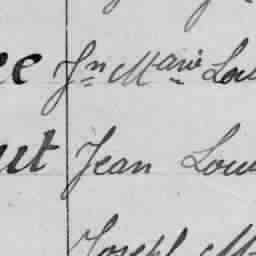 ee Jn Marie Lou
ut Jean Loui
Joseph M